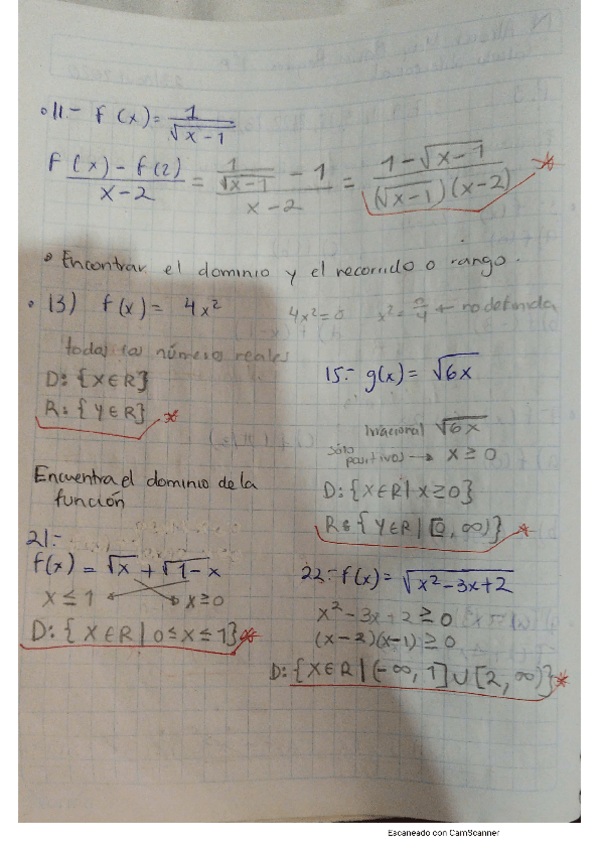 11.- f(x) = 1/√x-1
f(x) - f(2) / x-2 = 1/√x-1 - 1 / x-2 = 1-√x-1 / (√x-1)(x-2)
Encontrar el dominio y el recorrido o rango.
13) f(x) = 4x² 4x²=0 x²= 0/4 ← no definida
todos los números reales
D: {X∈R}
R: {Y∈R}
15.- g(x) = √6x
Irracional √6x
sólo positivos → x ≥ 0
D: {X∈R | x≥0}
R: {Y∈R | [0, ∞)}
Encuentra el dominio de la
función
21.-
f(x) = √x + √1-x
x ≤ 1 x ≥ 0
D: { X∈R | 0 ≤ x ≤ 1}
22.- f(x) = √x²-3x+2
x²-3x+2 ≥ 0
(x-2)(x-1) ≥ 0
D: {X∈R | (-∞, 1] ∪ [2, ∞)}
Escaneado con CamScanner